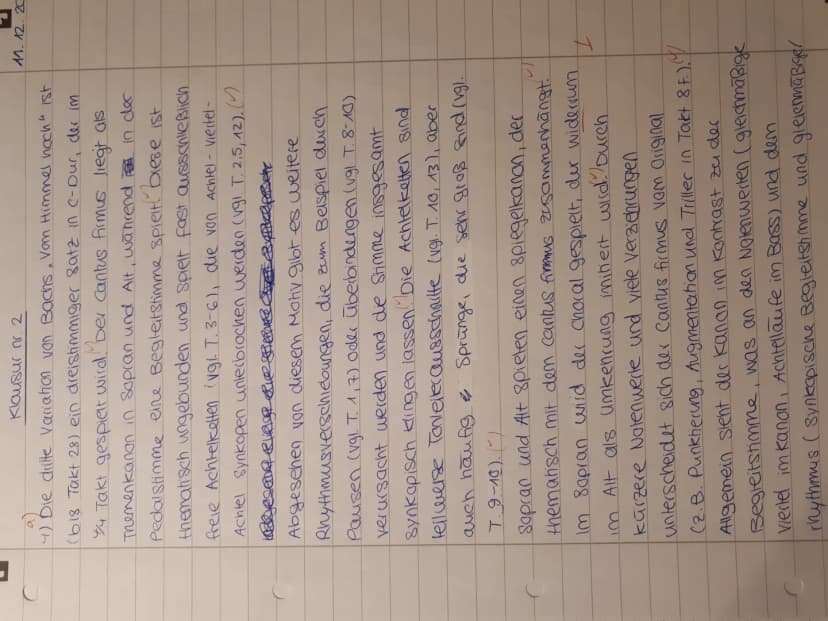 Klausur nr 2
11.12.20
a)
4) Die dritte Variation von Bachs „Vom Himmel hoch" ist
(bis Takt 23) ein dreistimmiger Satz in C-Dur, der im
4/4 Takt gespielt wird. (✓) Der Cantus Firmus liegt als
Themenkanon in Sopran und Alt, während in der
Pedalstimme eine Begleitstimme spielt. (✓) Diese ist
thematisch ungebunden und spielt fast ausschließlich
freie Achtelketten (vgl. T. 3-6), die von Achtel-Viertel-
Achtel Synkopen unterbrochen werden (vgl. T. 2.5, 12). (✓)
Abgesehen von diesem Motiv gibt es weitere
Rhythmusverschiebungen, die zum Beispiel durch
Pausen (vgl. T. 1, 7) oder Überbindungen (vgl. T. 8-10)
verursacht werden und die Stimme insgesamt
synkopisch klingen lassen. (✓) Die Achtelketten sind
teilweise Tonleiterausschnitte (vgl. T. 10, 13), aber
auch häufig Sprünge, die sehr groß sind (vgl.
T. 9-10). (✓)
Sopran und Alt spielen einen Spiegelkanon, der
thematisch mit dem Cantus Firmus zusammenhängt. (✓)
Im Sopran wird der Choral gespielt, der widerum
im Alt als Umkehrung imitiert wird. (✓) Durch
kürzere Notenwerte und viele Verzierungen
unterscheidet sich der Cantus firmus vom Original
(z.B. Punktierung, Augmentation und Triller in Takt 8 f.). (✓)
Allgemein steht der Kanon im Kontrast zu der
Begleitstimme, was an den Notenwerten (gleichmäßige
Viertel im Kanon, Achtelläufe im Bass) und dem
Rhythmus (synkopische Begleitstimme und gleichmäßiger